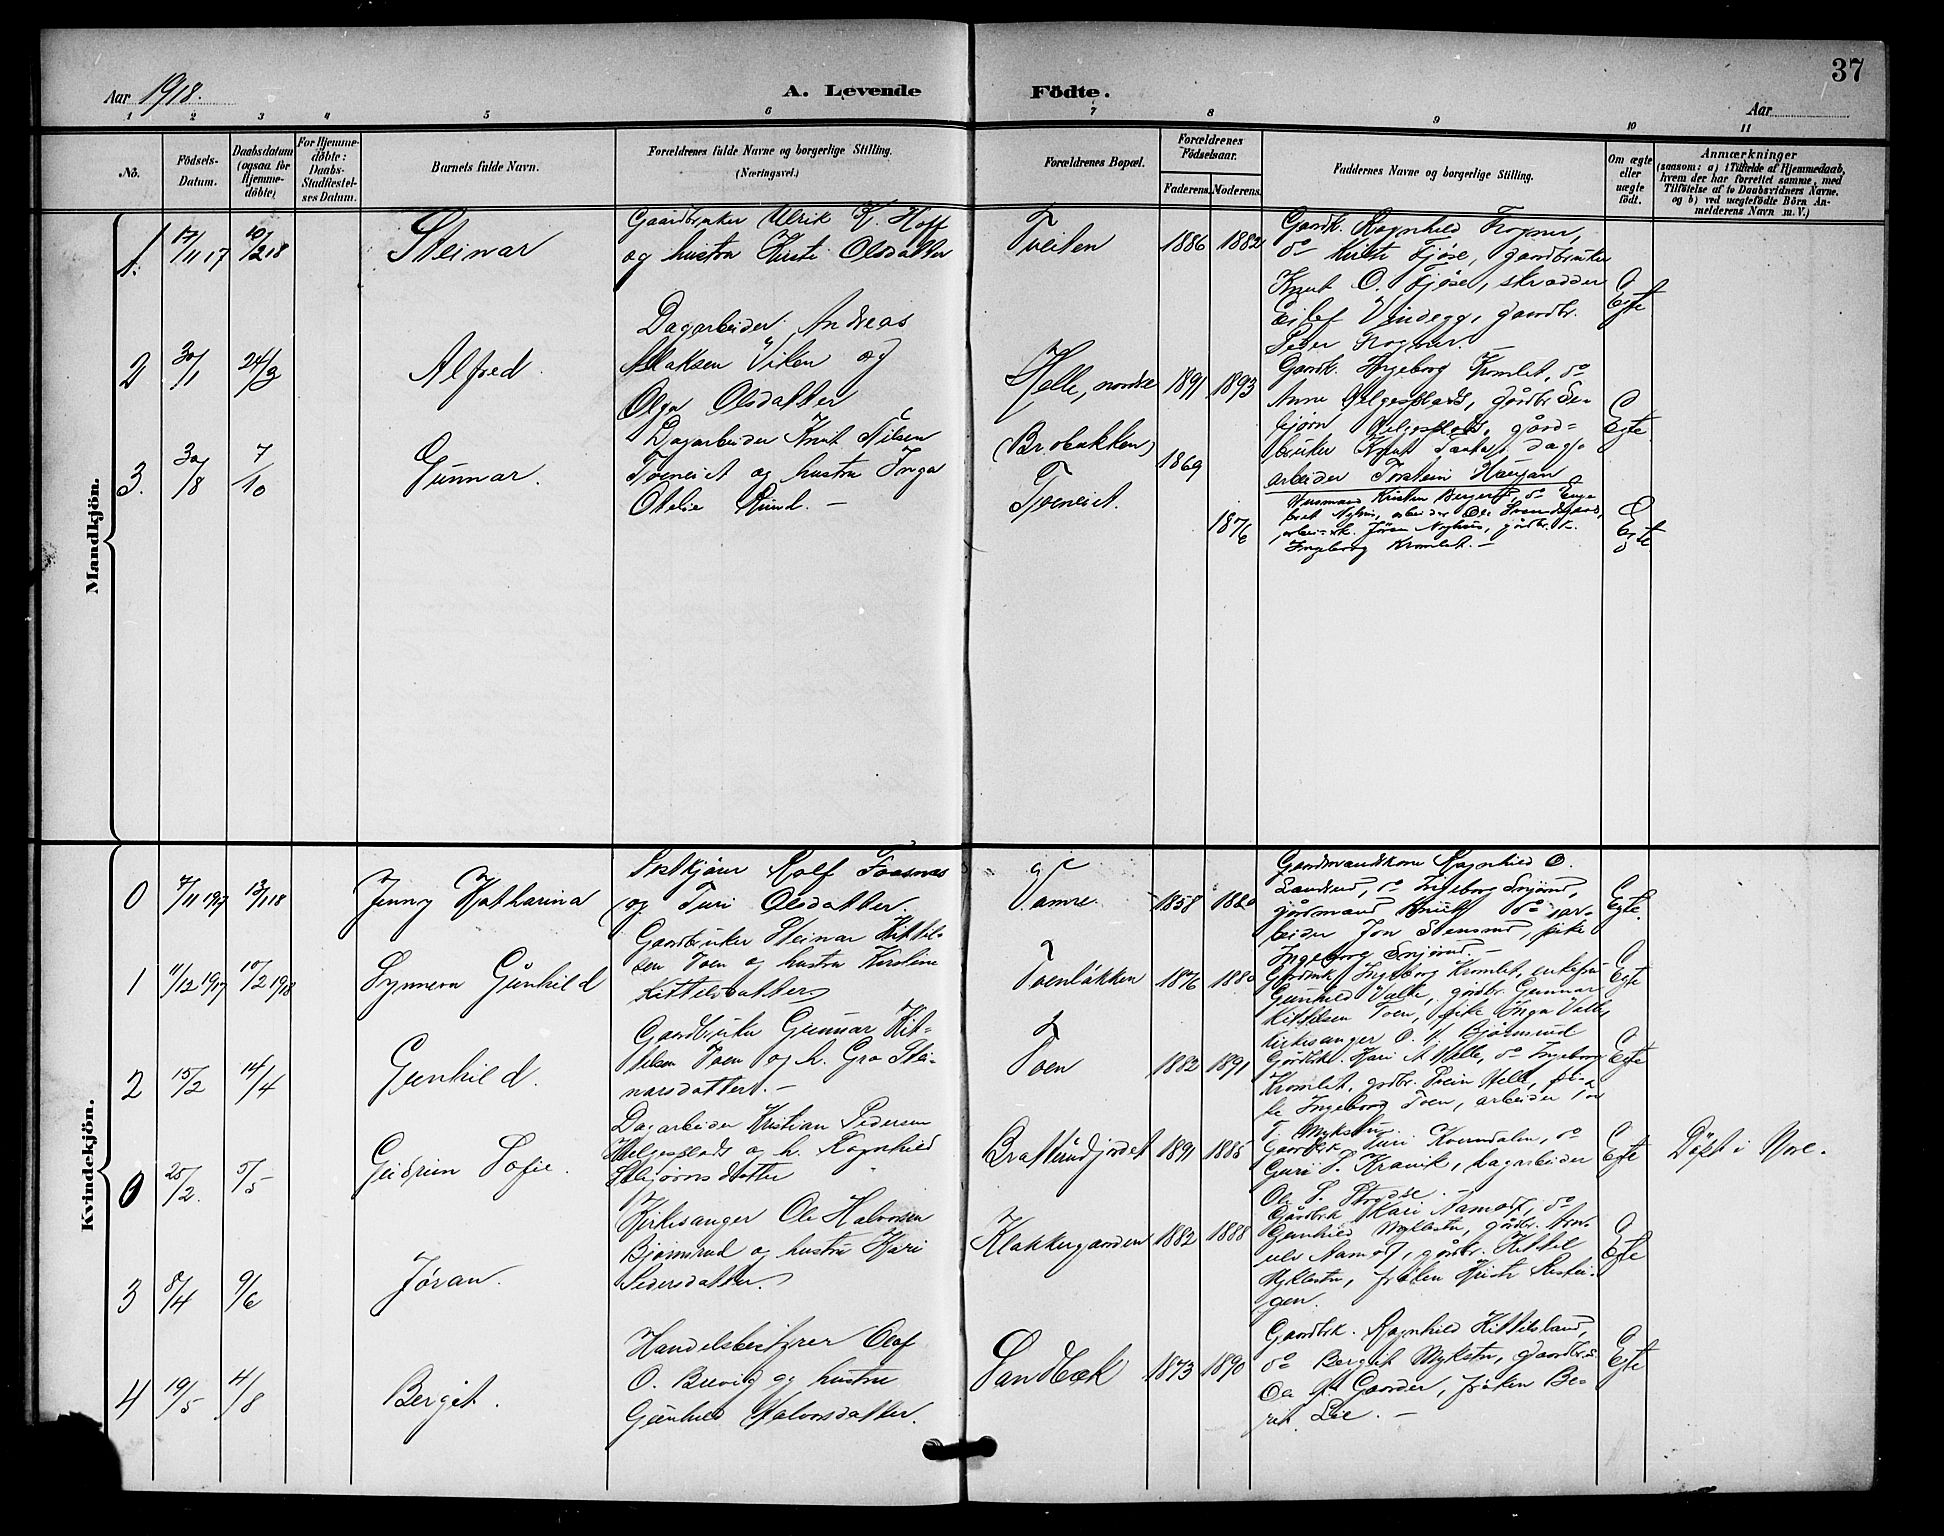 37
Aar 1918.
A. Levende Födte.
Aar
1 2 3 4 5 6 7 8 9 10 11
No.
Födsels-Datum.
Daabsdatum (ogsaa for Hjemme-döbte)
For Hjemme-döbte: Daabs-Stadfæstel-ses Datum.
Barnets fulde Navn.
Forældrenes fulde Navne og borgerlige Stilling.
(Næringsvei.)
Forældrenes Bopæl.
Forældrenes Födselsaar.
Faderens. Moderens.
Faddernes Navne og borgerlige Stilling.
Om ægte eller uægte födt.
Anmærkninger
(saasom: a) i Tilfælde af Hjemmedaab,
hvem der har forrettet samme, med
Tilföielse af to Daabsvidners Navne.
og b) ved uægtefödte Börn An-
melderens Navn m. V.)
Mandkjön.
1. 17/11 17 10/2 18
Steinar
Gaardbruker Ulrik K. Hoff
og hustru Kirsti Olsdatter
Tveiten
1886 1882
Gaardk. Ragnhild Frogner,
do Kirsti Fjöse, gaardbruker
Knut O. Fjöse, skrædder
Eilef Vindegg, gaardbr.
Peder Frogner.
Egte
2 30/1 24/3
Alfred.
Dagarbeider Andreas
Isaksen Viken og
Olga Olsdatter
Helle, nordre
(Brobakken)
1891 1893
Gaardk. Ingeborg Kromlet, do
Anne Helgesplads, gårdbr.
Helgesplads, gård-
bruker Knut dag-
arbeider Torstein
Egte
3. 30/8 7/10
Gunnar.
Dagarbeider Knut Nilsen
Toeneiet og hustru Inga
Otelie Rund. –
Toeneiet.
1869
1876
Husmand Kristen
arbeider Ole
Nyhus, gårdbr.k.
Ingeborg Kromlet. –
Egte
Kvindekjön.
0 7/11 1917 13/1 18
Jenny Katharina
Rolf Faasnæs
og Turi Olsdatter.
Vamre.
1858
Gaardmandskone Ragnhild O.
Landsrud, do Ingeborg
gårdmand Knut do, ar-
beider Jon Stensrud, pike
Ingeborg
Egte
1 11/12 1917 10/2 1918
Synneva Gunhild
Gaardbruker Steinar Kittil-
sen Toen og hustru Karoline
Kittilsdatter
Toenløkken
1876 1880
Gårdbrk. Ingeborg Kromlet, enkefru
Gunhild Valle, gårdbr. Gunnar
Kittilsen Toen, pike Inga Valle,
kirkesanger O. H. Bjørnsrud
Egte
2 15/2 14/4
Gunhild.
Gaardbruker Gunnar Kit-
tilsen Toen og h. Gro Stei-
narsdatter. –
Toen
1882 1891
Gårdbrk. Kari A. Helle, do Ingeborg
Kromlet, gårdbr. Svein Helle, pi-
ke Ingeborg Toen, arbeider Tor
T. Mykstu.
Egte
0 25/2. 5/5
Gudrun Sofie.
Dagarbeider Kristian Pedersen
Helgesplads og h. Ragnhild
Stebjørnsdatter
Bratterudjordet
1891 1885
Gaardbrk. Turi Kverndalen, do
Guri S. Kravik, dagarbeider
Ole S.
Egte
Döpt i Nore.
3 8/4 9/6
Jöran.
Kirkesanger Ole Halvorsen
Bjørnsrud og hustru Kari
Pedersdatter.
Klakkergaarden
1882 1888
Gårdbrk. Kari Aamost, do
Gunhild Myklestu, gårdbr. Arn-
ulv Aamost, gårdbr. Kittil
Myklestu, frøken Kirsti
gen.
Egte
4 19/5 4/8
Bergit.
Handelsbestyrer Olaf
O. Brevig og hustru
Gunhild Halvorsdatter.
Sandbæk
1873 1890
Gaardbrk. Ragnhild Kittilsland,
do Bergit Mykstu, gaardbr.
Gaarder, frøken Be-
rit Lie. –
Egte